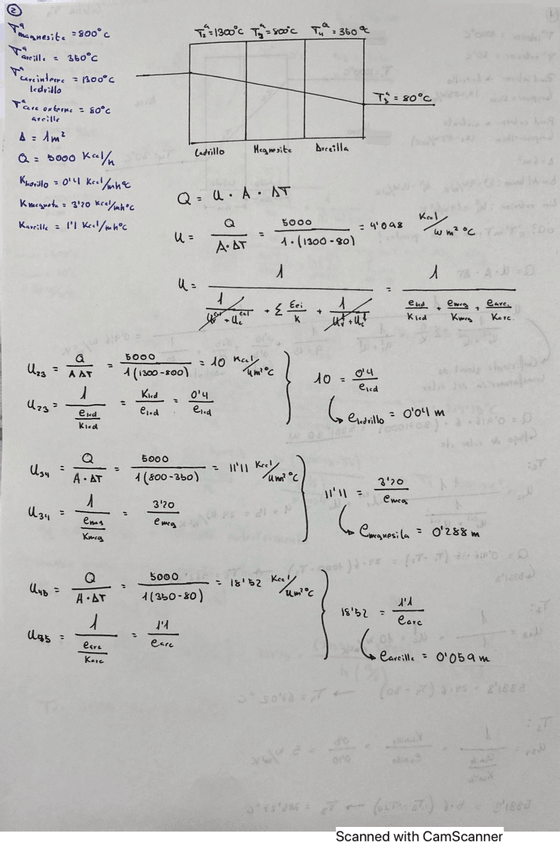 ②
Tªmagnesita = 800°C
Tªarcilla = 350°C
Tªcara interna = 1300°C
ladrillo
Tªcara externa = 80°C
arcilla
A = 1m²
Q = 5000 Kcal/h
Kladrillo = 0'4 Kcal/mh°C
Kmagnesita = 3'20 Kcal/mh°C
Karcilla = 1'1 Kcal/mh°C
T₂ª=1300°C T₃ª=800°C T₄ª = 350°C
T₅ª = 80°C
Ladrillo Magnesita Arcilla
Q = U · A · ΔT
U = Q / A·ΔT = 5000 / 1·(1300-80) = 4'098 Kcal/h m² °C
U = 1 / = 1 / eLad/KLad + emag/Kmag + earc/Karc
U₂₃ = Q / A ΔT = 5000 / 1(1300-800) = 10 Kcal/hm²°C
U₂₃ = 1 / eLad/KLad = KLad/eLad = 0'4/eLad
10 = 0'4/eLad
↳ eladrillo = 0'04 m
U₃₄ = Q / A·ΔT = 5000 / 1(800-350) = 11'11 Kcal/hm²°C
U₃₄ = 1 / emag/Kmag = 3'20/emag
11'11 = 3'20/emag
↳ emagnesita = 0'288 m
U₄₅ = Q / A·ΔT = 5000 / 1(350-80) = 18'52 Kcal/hm²°C
U₄₅ = 1 / earc/Karc = 1'1/earc
18'52 = 1'1/earc
↳ earcilla = 0'059 m
Scanned with CamScanner